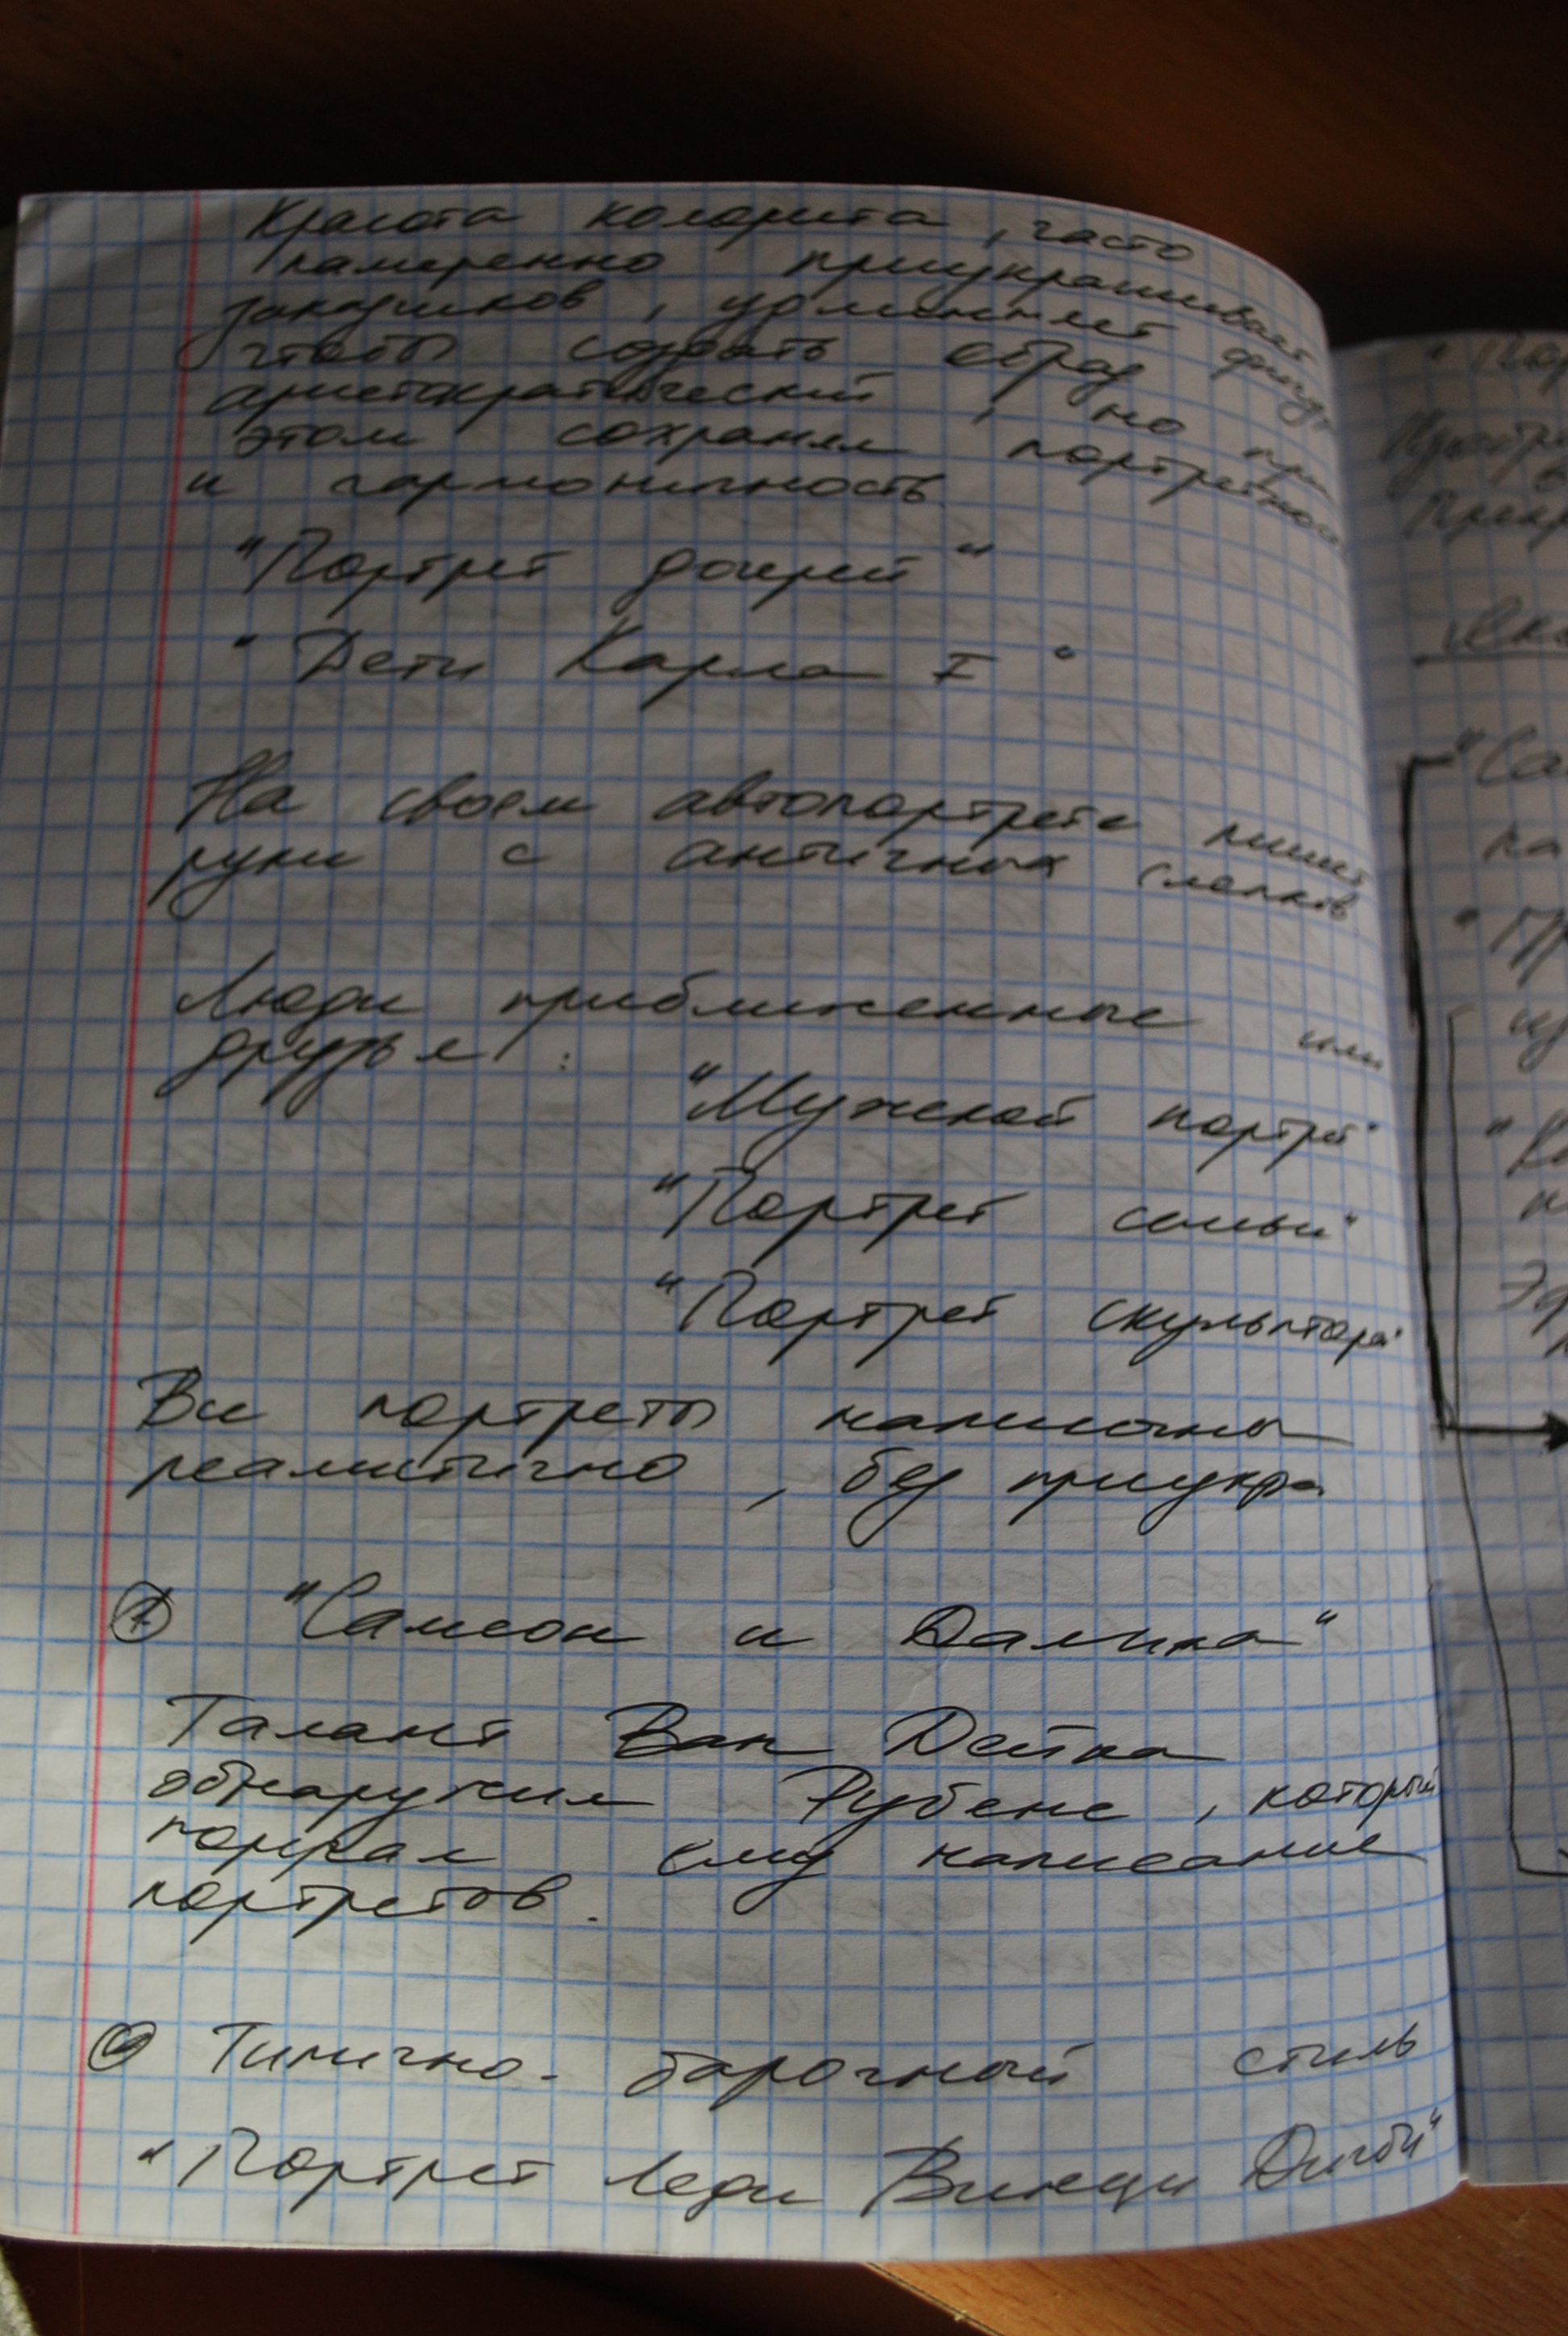 Красота колорита, часто
намеренно приукрашивает
заказчиков, удлинняет фигуры
чтобы создать образ
аристократический, но при
этом сохраняя портретность
и гармоничность.
"Портрет дочерей"
"Дети Карла I"
На своем автопортрете пишет
руки с античных слепков
Люди приближенные или
друзья:
"Мужской портрет"
"Портрет семьи"
"Портрет скульптора"
Все портреты написаны
реалистично, без приукра
① "Самсон и Далила"
Талант Ван Дейка
обнаружил Рубенс, который
поручал ему написание
портретов.
Типично-барочный стиль
"Портрет Леди Винеции Дигби"
"Са
на
"Пр
из